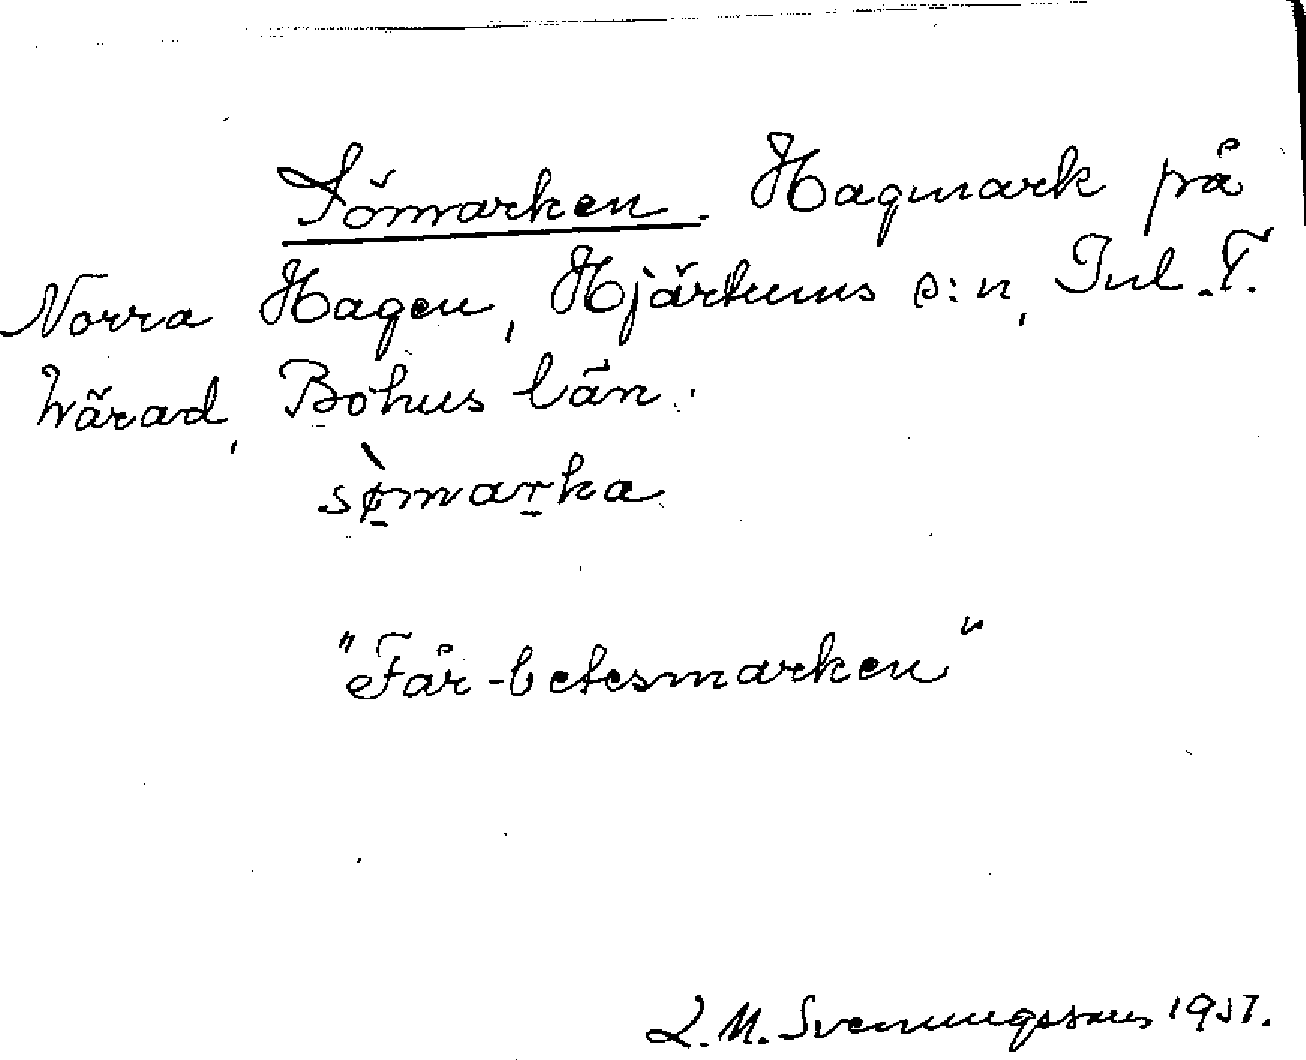 Sömarken. Hagmark på
Norra Hagen, Hjärtums s:n, Inl. T.
härad, Bohus län.
sø̀marka
"Får-betesmarken"
L.M. Svenungsson 1937.